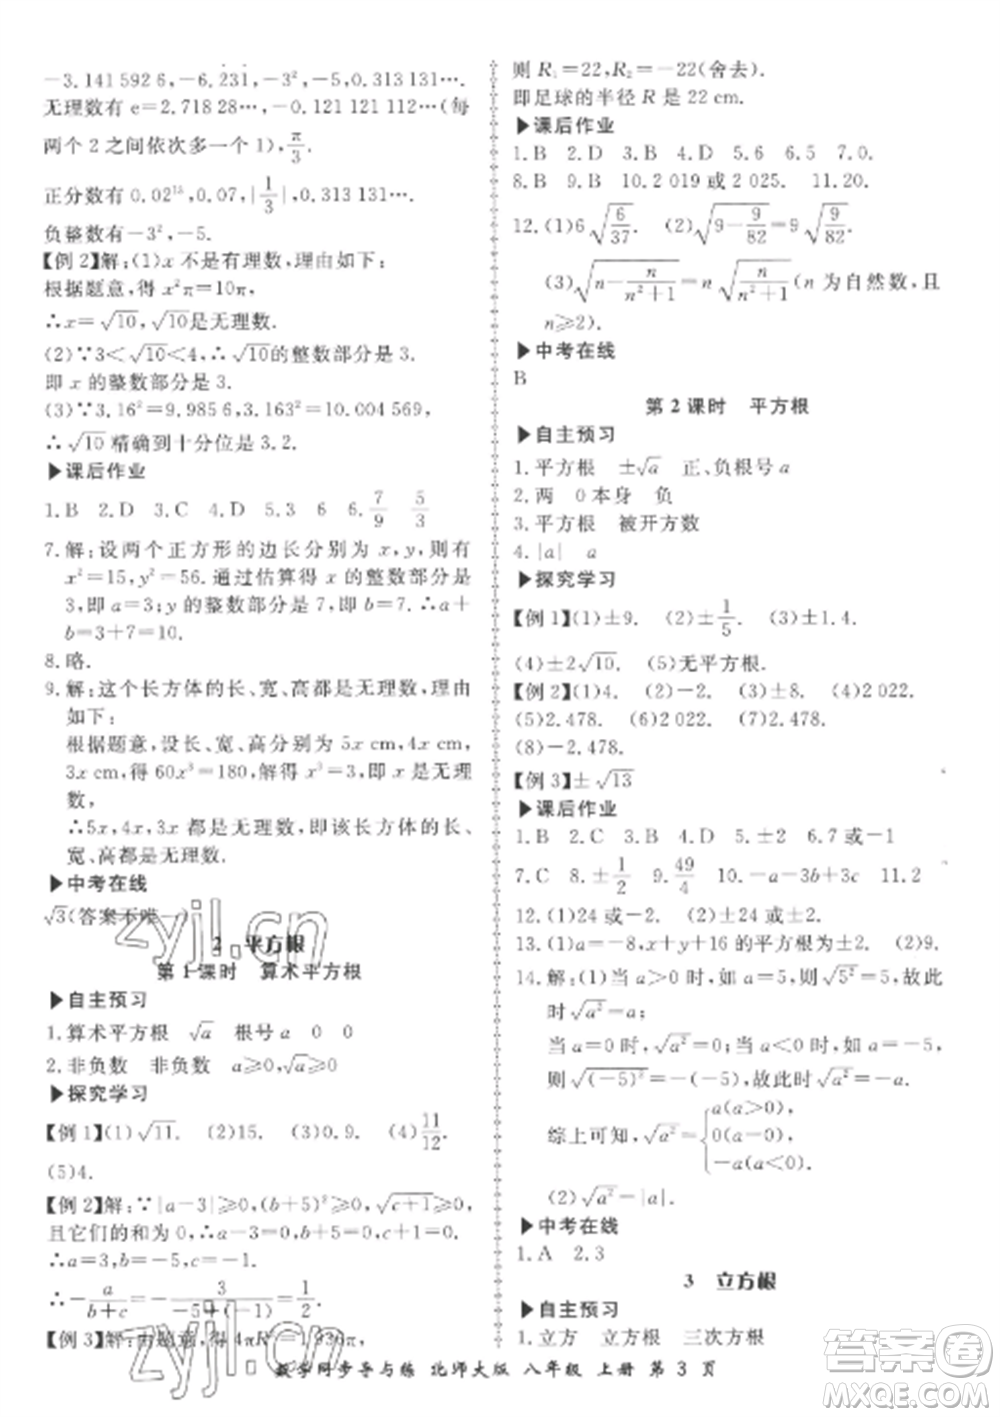 -3.141 592 6, -6.231, -3², -0.313 131….
无理数有 e=2.718 28…, -0.121 121 112…(每
两个 2 之间依次多一个 1), π/3.
正分数有 0.02¹⁵, 0.07, |1/3|, 0.313 131….
负整数有 -3², -5.
【例 2】解:(1)x 不是有理数,理由如下:
根据题意,得 x²π=10π,
∴x=√10, √10是无理数.
(2)∵3<√10<4, ∴√10的整数部分是 3.
即 x 的整数部分是 3.
(3)∵3.16²=9.985 6, 3.163²=10.004 569,
∴√10 精确到十分位是 3.2.
▶课后作业
1.B 2.D 3.C 4.D 5.3 6 6. 7/9 5/3
7.解:设两个正方形的边长分别为 x, y,则有
x²=15, y²=56. 通过估算得 x 的整数部分是
3,即 a=3; y 的整数部分是 7,即 b=7. ∴a+
b=3+7=10.
8.略.
9.解:这个长方体的长、宽、高都是无理数,理由
如下:
根据题意,设长、宽、高分别为 5x cm, 4x cm,
3x cm,得 60x³=180,解得 x³=3,即 x 是无理
数,
∴5x, 4x, 3x 都是无理数,即该长方体的长、
宽、高都是无理数.
▶中考在线
√3(答案不唯一)
2 平方根
第 1 课时 算术平方根
▶自主预习
1.算术平方根 √a 根号 a 0 0
2.非负数 非负数 a≥0 √a≥0
▶探究学习
【例 1】(1)√11. (2)15. (3)0.9. (4)11/12.
(5)4.
【例 2】解:∵|a-3|≥0, (b+5)²≥0, √(c+1)≥0,
且它们的和为 0, ∴a-3=0, b+5=0, c+1=0.
∴a=3, b=-5, c=-1.
∴-a/(b+c)=-3/(-5+(-1))=1/2.
【例 3】解:由题意,得 4πR²=1 936π,
则 R₁=22, R₂=-22(舍去).
即足球的半径 R 是 22 cm.
▶课后作业
1.B 2.D 3.A 4.D 5.6 6.5 7.0.
8.B 9.B 10.2 019或 2 025. 11.20.
12.(1)6√(6/37) (2)√(9-9/82)=9√(9/82).
(3)√(n-n/(n²+1))=n√(n/(n²+1))(n 为自然数,且
n≥2).
▶中考在线
B
第 2 课时 平方根
▶自主预习
1.平方根 ±√a 正、负根号 a
2.两 0 本身 负
3.平方根 被开方数
4.|a| a
▶探究学习
【例 1】(1)±9. (2)±1/5. (3)±1.4.
(4)±2√10. (5)无平方根.
【例 2】(1)4. (2)-2. (3)±8. (4)2 022.
(5)2.478. (6)2 022. (7)2.478.
(8)-2.478.
【例 3】±√13
▶课后作业
1.B 2.C 3.B 4.D 5.±2 6.7 或-1
7.C 8.±1/2 9.49/4 10.-a-3b+3c 11.2
12.(1)24 或-2. (2)24 或-2.
13.(1)a=-8, x+y+16 的平方根为±4. (2)9.
14.解:(1)当 a>0 时,如 a=5,则√5²=5,故此
时√a²=a;
当 a=0 时, √a²=0;当 a<0 时,如 a=-5,
则√(-5)²=-(-5)=5,故此时√a²=-a.
综上可知, √a²={a(a>0), 0(a=0), -a(a<0).
(2)√a²=|a|.
▶中考在线
1.A 2.3
3 立方根
▶自主预习
1.立方 立方根 三次方根
数学同步导与练 北师大版 八年级 上册 第 3 页
zyjl.cn
zyjl.cn
答案圈
MXQE.COM